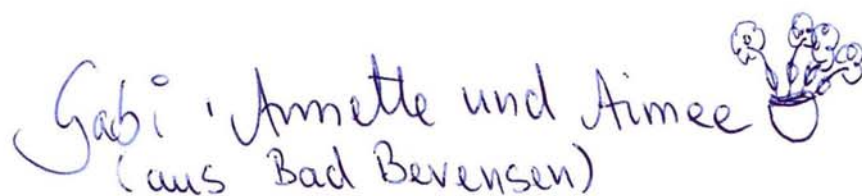 Gabi, Annette und Aimee
(aus Bad Bevensen)